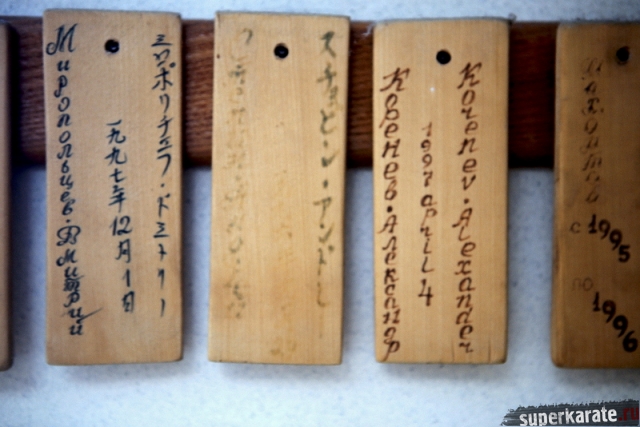 Миропольцев.Дмитрий
一九九七年12月1日
ミロポリチェフ・ドミトリー
スチョピン・アンドレ
Коренев.Александр
1997 april 4
Korenev.Alexander
с 1995
по 1996
superkarate.ru